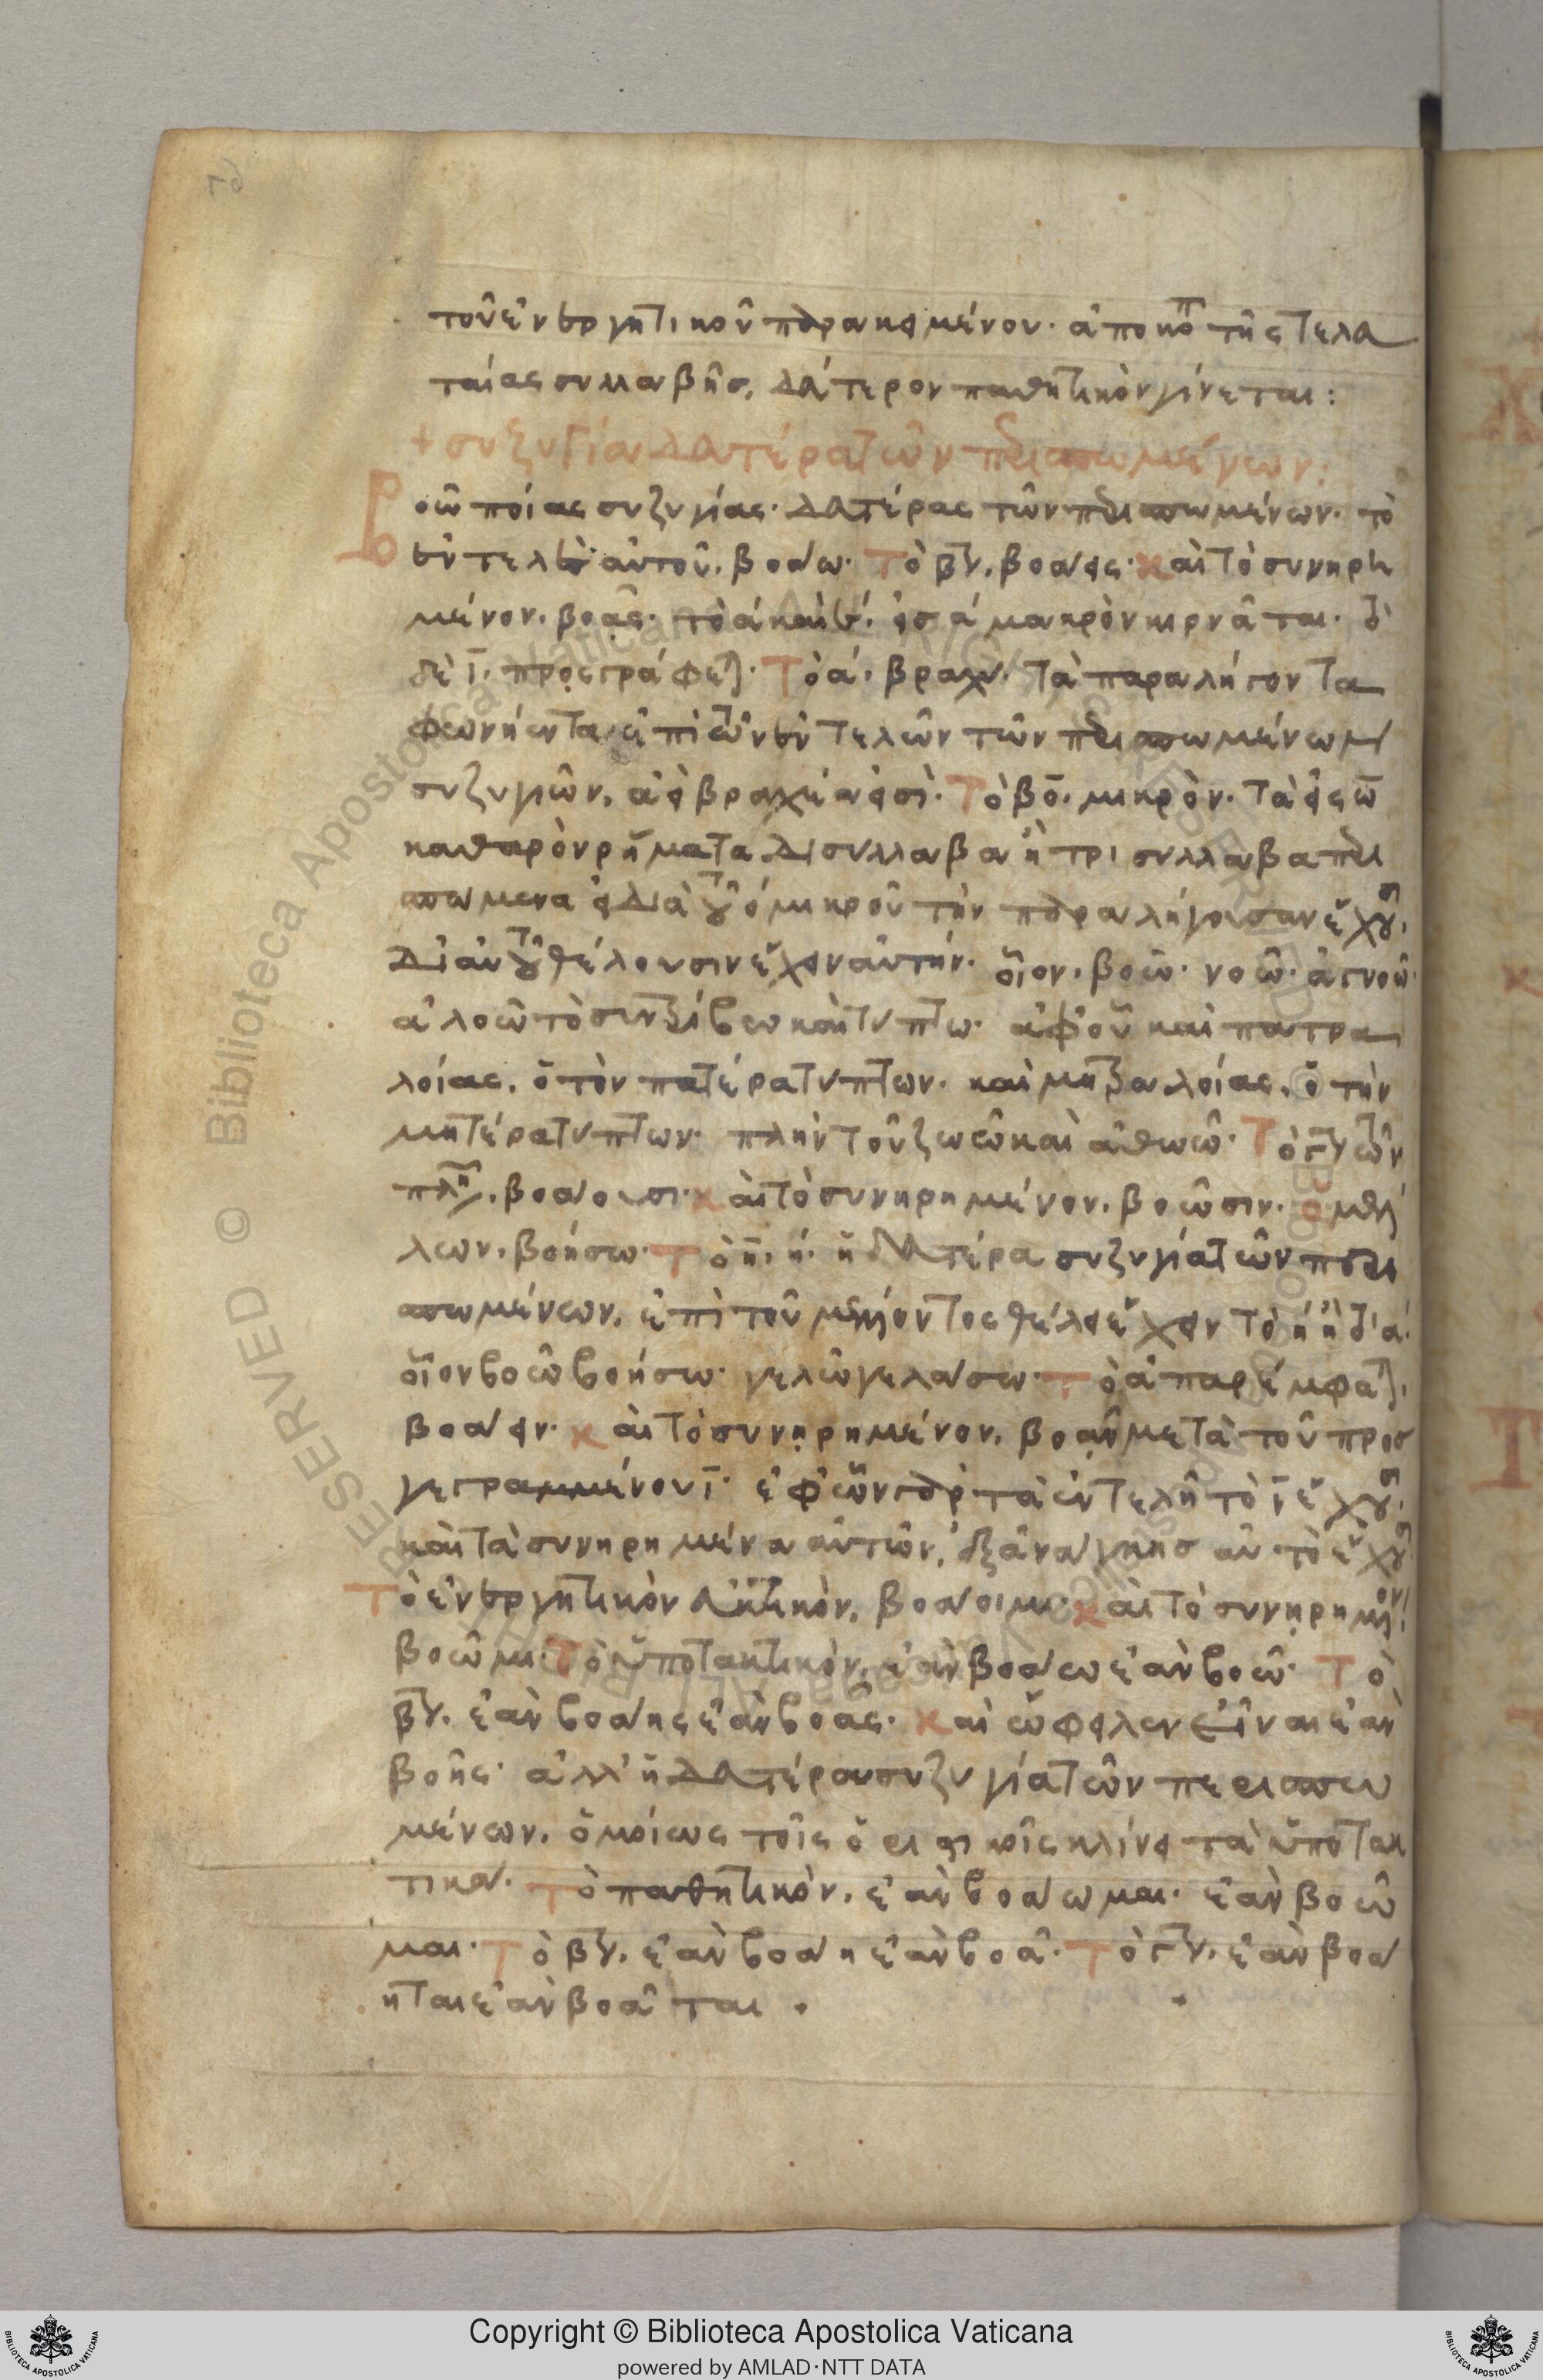 τοῦ ἐνεργητικοῦ παρακειμένου· ἀποκοπῇ τῆς τελευ
ταίας συλλαβῆς, δεύτερον παθητικὸν γίνεται:
+ συζυγία δευτέρα τῶν περισπωμένων:
Βοῶ ποίας συζυγίας· δευτέρας τῶν περισπωμένων· τὸ
ἐντελὲς αὐτοῦ, βοάω· Τὸ βον, βοάεις· καὶ τὸ συνηρη
μένον, βοᾷς· τὸ α καὶ ε, εἰς α μακρὸν κιρνᾶται· τὸ
δὲ ι, προσγράφεται· Τὸ α, βραχύ· τὰ παραλήγοντα
φωνήεντα ἐπὶ τῶν ἐντελῶν τῶν περισπωμένων
συζυγιῶν, ἀεὶ βραχέα εἰσί· Τὸ βο, μικρὸν· Τὰ εἰς ω
καθαρὸν ῥήματα δισύλλαβα ἢ τρισύλλαβα περι
σπώμενα εἰ διὰ τοῦ ο μικροῦ τὴν παραλήγουσαν ἔχουσι,
δι' αὐτοῦ θέλουσιν ἔχειν αὐτήν· οἷον, βοῶ· νοῶ· ἀγνοῶ·
ἀλοῶ τὸ συντρίβω καὶ τύπτω· ἀφ' οὗ καὶ πατρα
λοίας, ὁ τὸν πατέρα τύπτων· καὶ μητραλοίας, ὁ τὴν
μητέρα τύπτων· πλὴν τοῦ ζωῶ καὶ ἀθωῶ· Τὸ γον τῶν
πληθ, βοάουσι· καὶ τὸ συνηρημένον, βοῶσιν· ὁ μέλ
λων, βοήσω· Τὸ η, η· ἡ δευτέρα συζυγία τῶν περι
σπωμένων, ἐπὶ τοῦ μέλλοντος θέλει ἔχειν τὸ η ἢ τὸ α·
οἷον βοῶ βοήσω· γελῶ γελάσω· Τὸ ἀπαρέμφατον,
βοάειν· καὶ τὸ συνηρημένον, βοᾷν μετὰ τοῦ προσ
γεγραμμένου ι· ἐφ' ὧν γὰρ τὰ ἐντελῆ τὸ ι ἔχουσι,
καὶ τὰ συνηρημένα αὐτῶν, ἐξ ἀνάγκης αὐτὸ ἔχουσι
Τὸ ἐνεργητικὸν εὐκτικὸν, βοάοιμι· καὶ τὸ συνηρημένον,
βοῷμι· Τὸ ὑποτακτικὸν, ἐὰν βοάω ἐὰν βοῶ· Τὸ
βον, ἐὰν βοάῃς ἐὰν βοᾷς· καὶ ὤφειλεν εἶναι ἐὰν
βοῇς· ἀλλ' ἡ δευτέρα συζυγία τῶν περισπω
μένων, ὁμοίως τοῖς ὁριστικοῖς κλίνει τὰ ὑποτακ
τικά· Τὸ παθητικὸν, ἐὰν βοάωμαι· ἐὰν βοῶ
μαι· Τὸ βον, ἐὰν βοάῃ ἐὰν βοᾷ· Τὸ γον, ἐὰν βοά
ηται ἐὰν βοᾶται ·
Copyright © Biblioteca Apostolica Vaticana
powered by AMLAD·NTT DATA